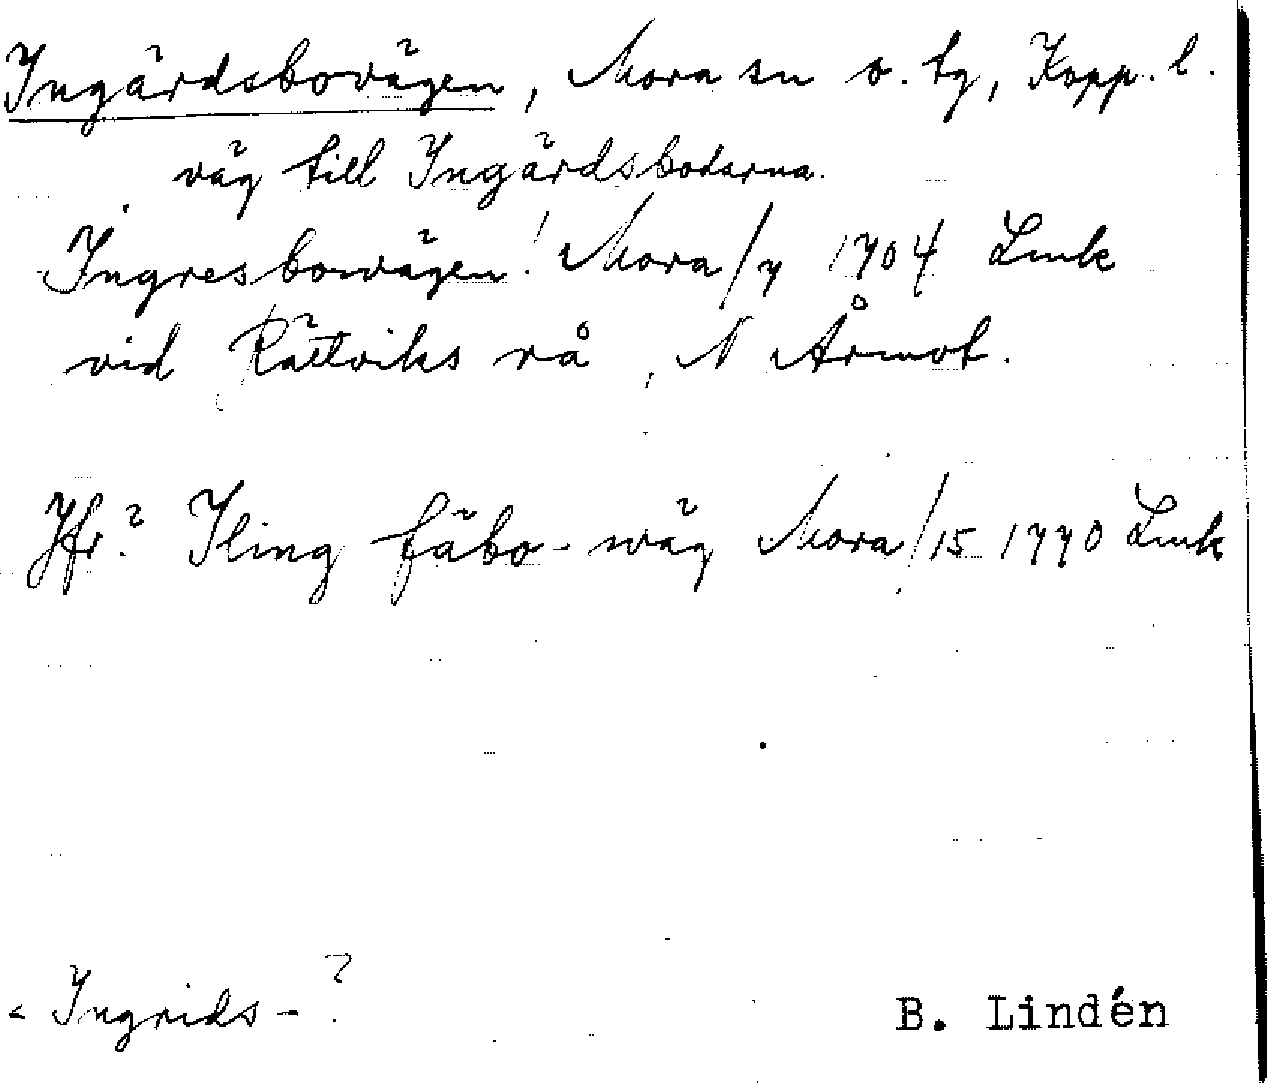 Ingärdsbovägen, Mora sn o. tg, Kopp. l.
väg till Ingärdsbodarna.
Ingresbowägen! Mora/7 1704 Lmk
vid Rättviks rå, N Åmot.
Jfr? Iling fäbo-wäg Mora/15 1770 Lmk
< Ingrids-?
B. Lindén